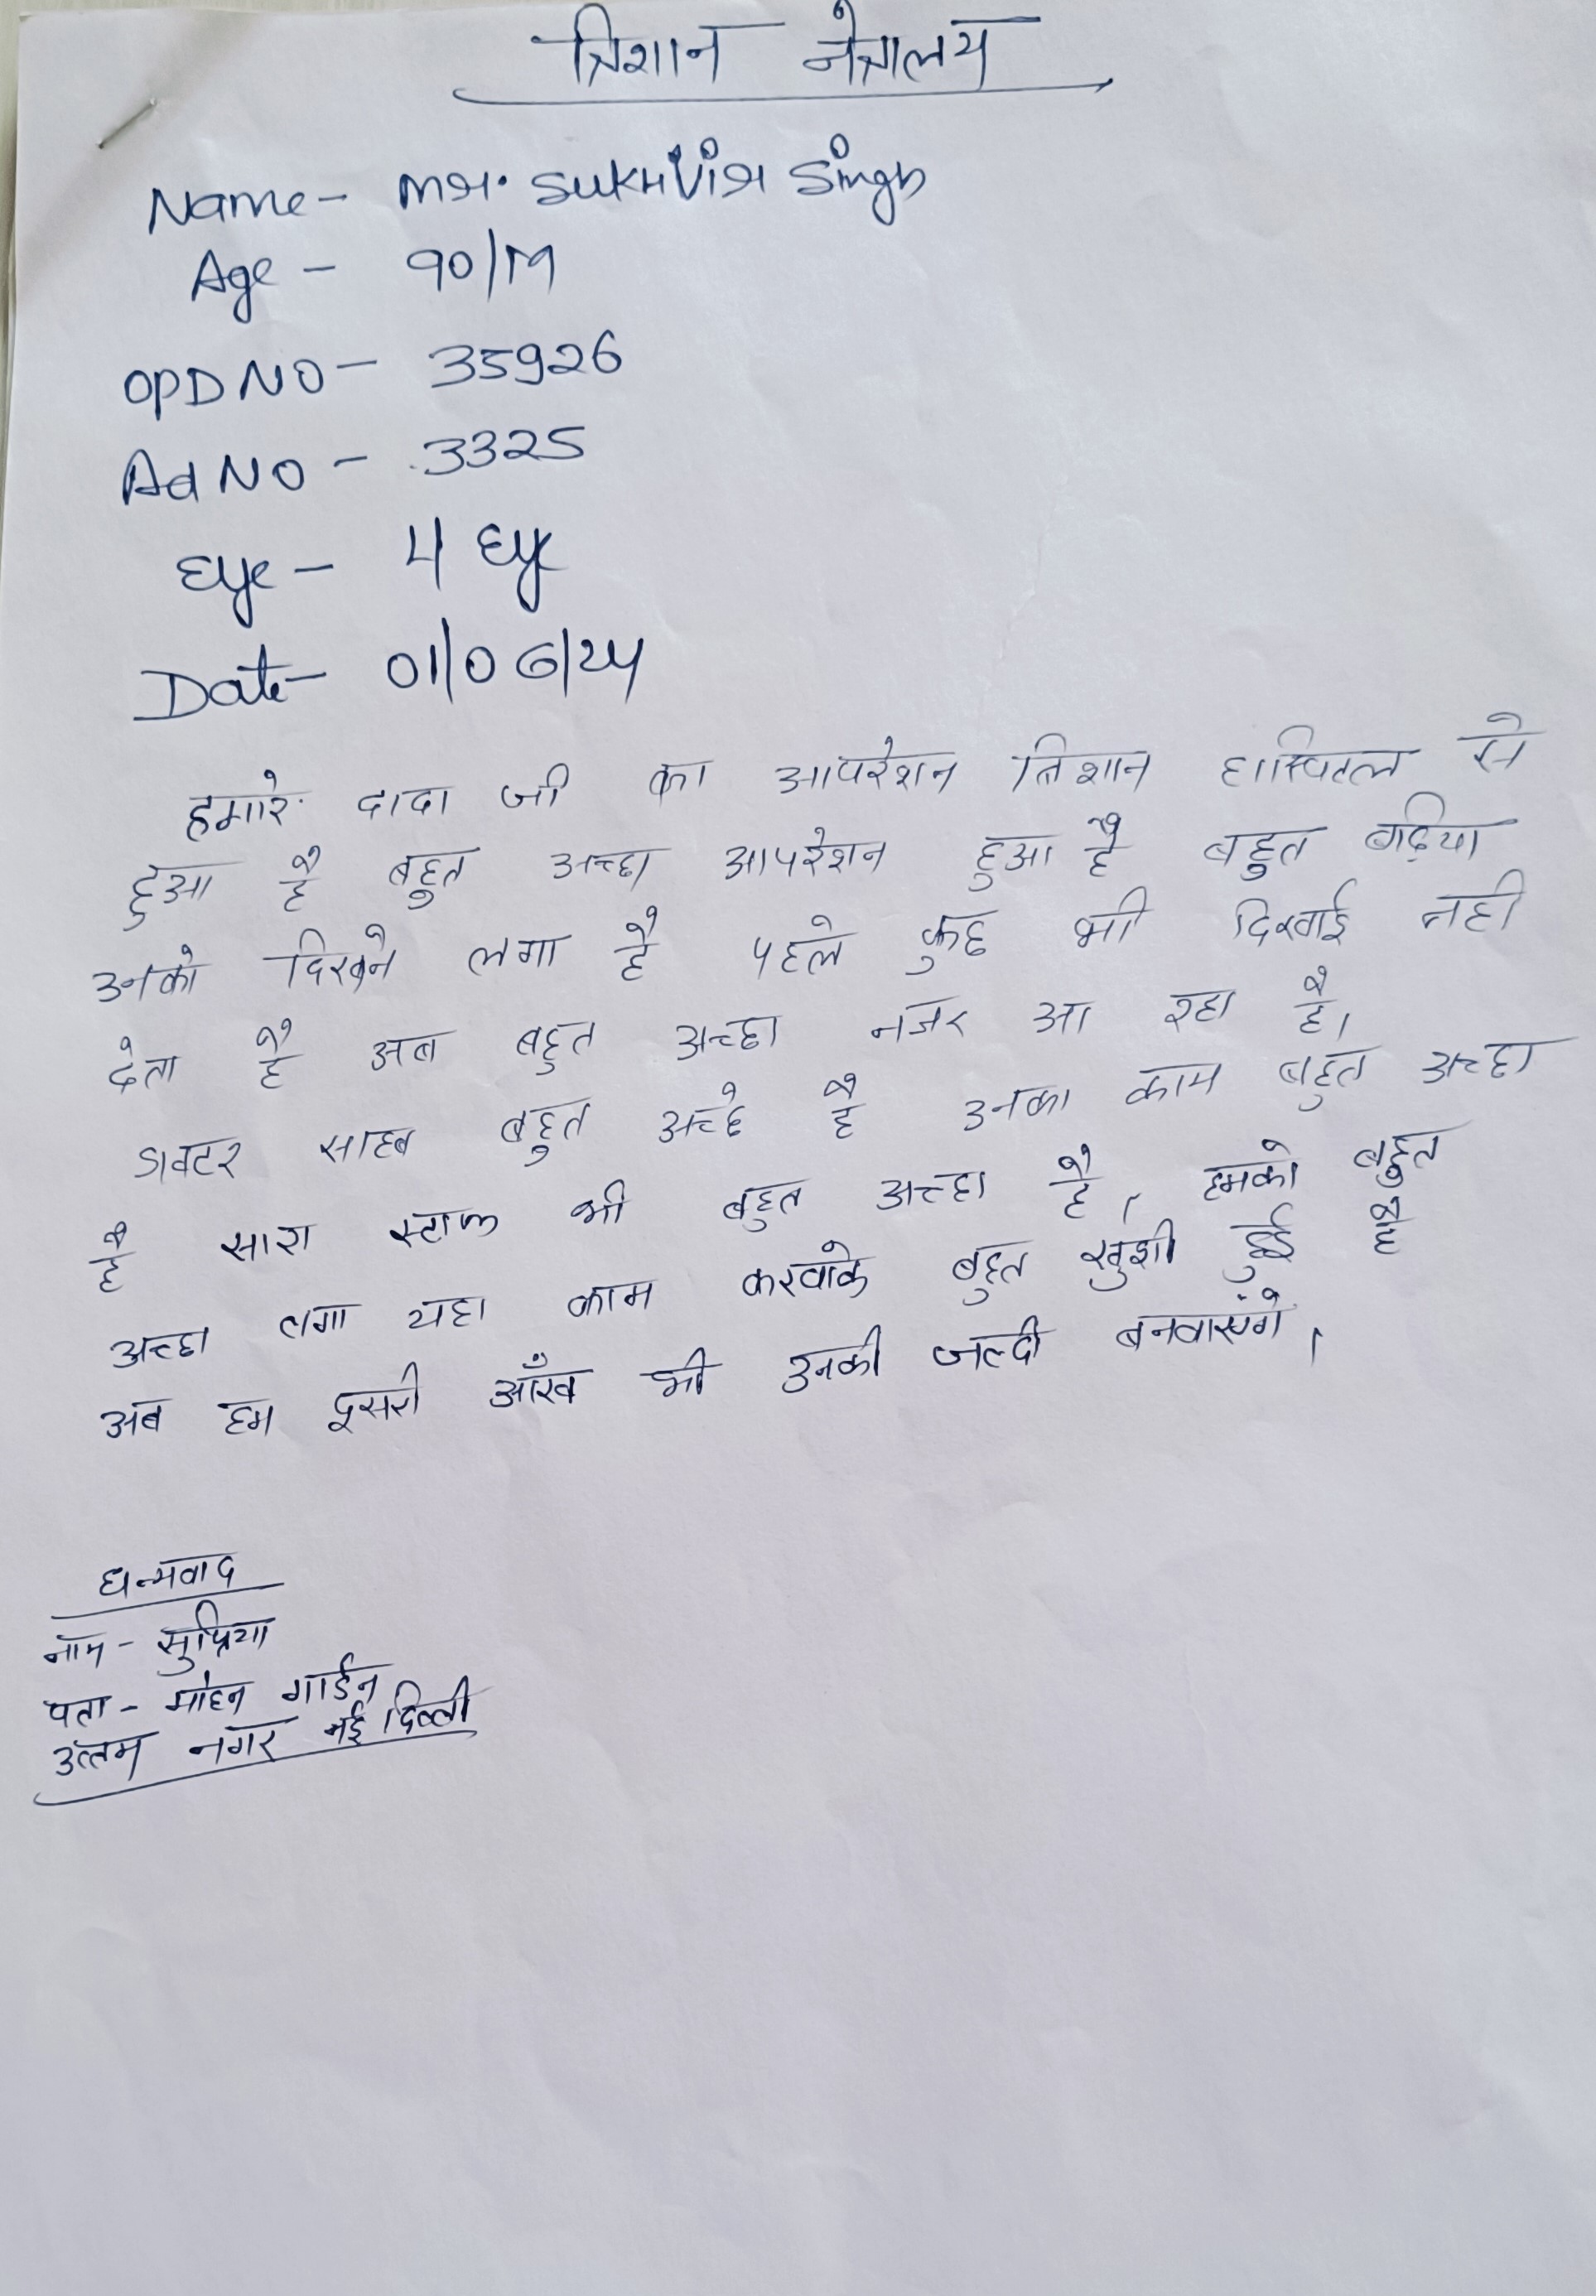 त्रिशान नेत्रालय
Name- Mr. Sukhvir Singh
Age - 90/M
OPD NO - 35926
Ad NO - 3325
Eye - 4 Eye
Date- 01/06/24
हमारे दादा जी का आपरेशन त्रिशान हास्पिटल से
हुआ है बहुत अच्छा आपरेशन हुआ है बहुत बढ़िया
उनको दिखने लगा है पहले कुछ भी दिखाई नही
देता है अब बहुत अच्छा नजर आ रहा है।
डाक्टर साहब बहुत अच्छे है उनका काम बहुत अच्छा
है सारा स्टाफ भी बहुत अच्छा है। हमको बहुत
अच्छा लगा यहा काम करवाके बहुत खुशी हुई है
अब हम दूसरी आँख भी उनकी जल्दी बनवाएंगे।
धन्यवाद
नाम - सुप्रिया
पता - मोहन गार्डन
उत्तम नगर नई दिल्ली